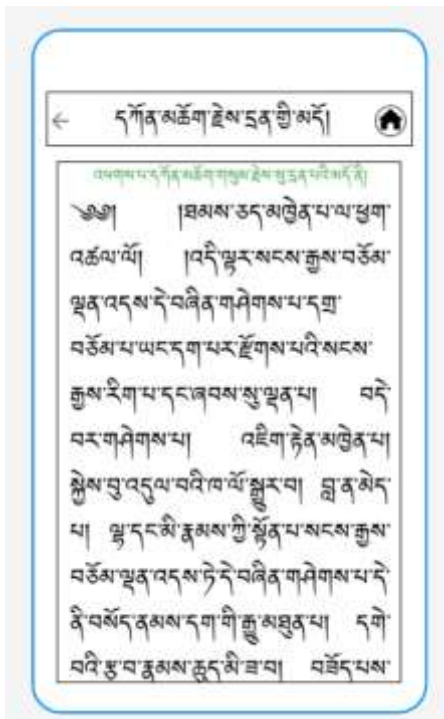 དཀོན་མཆོག་རྗེས་དྲན་གྱི་མདོ།
འཕགས་པ་དཀོན་མཆོག་གསུམ་རྗེས་སུ་དྲན་པའི་མདོ་ནི།
༄༅། །ཐམས་ཅད་མཁྱེན་པ་ལ་ཕྱག་
འཚལ་ལོ། །འདི་ལྟར་སངས་རྒྱས་བཅོམ་
ལྡན་འདས་དེ་བཞིན་གཤེགས་པ་དགྲ་
བཅོམ་པ་ཡང་དག་པར་རྫོགས་པའི་སངས་
རྒྱས་རིག་པ་དང་ཞབས་སུ་ལྡན་པ། བདེ་
བར་གཤེགས་པ། འཇིག་རྟེན་མཁྱེན་པ།
སྐྱེས་བུ་འདུལ་བའི་ཁ་ལོ་སྒྱུར་བ། བླ་ན་མེད་
པ། ལྷ་དང་མི་རྣམས་ཀྱི་སྟོན་པ་སངས་རྒྱས་
བཅོམ་ལྡན་འདས་ཏེ་དེ་བཞིན་གཤེགས་པ་དེ་
ནི་བསོད་ནམས་དག་གི་རྒྱུ་མཐུན་པ། དགེ་
བའི་རྩ་བ་རྣམས་ཆུད་མི་ཟ་བ། བཟོད་པས་